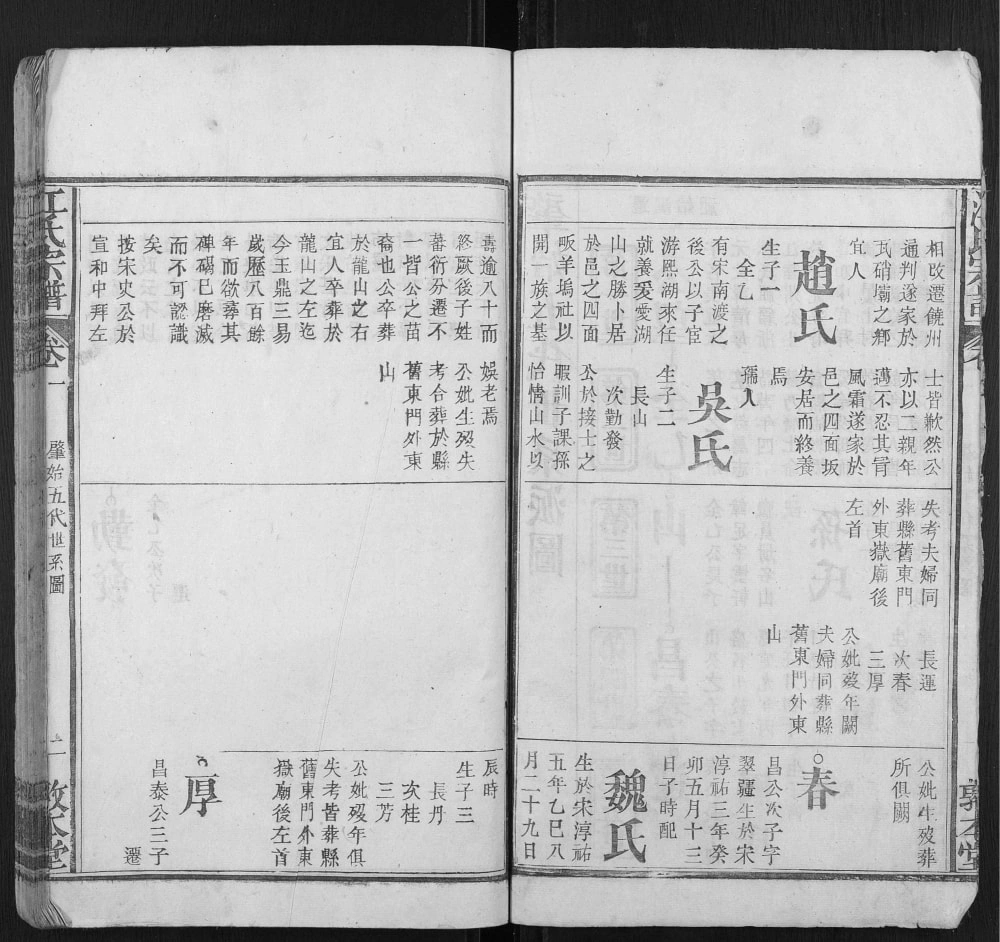 相改遷饒州
通判遂家於
瓦硝壩之鄉
宜人
趙氏
生子一
全乙
有宋南渡之
後公以子宦
游熙湖來任
就養爰愛湖
山之勝卜居
於邑之四面
坂羊塢社以
開一族之基
士皆歉然公
亦以二親年
邁不忍其冐
風霜遂家於
邑之四面坂
安居而終養
焉
孺人
吳氏
生子二
長山
次勤發
公於接士之
暇訓子課孫
怡情山水以
失考夫婦同
葬縣舊東門
外東嶽廟後
左首
長運
次春
三厚
公妣歿年闕
夫婦同葬縣
舊東門外東
山
公妣生歿葬
所俱闕
春
昌公次子字
翠疆生於宋
淳祐三年癸
卯五月十三
日子時配
魏氏
生於宋淳祐
五年乙巳八
月二十九日
壽逾八十而
終厥後子姓
蕃衍分遷不
一皆公之苗
裔也公卒葬
於龍山之右
宜人卒葬於
龍山之左迄
今玉鼎三易
歲歷八百餘
年而欲尋其
碑碣已磨滅
而不可認識
矣
按宋史公於
宣和中拜左
娛老焉
公妣生歿失
考合葬於縣
舊東門外東
山
辰時
生子三
長丹
次桂
三芳
公妣歿年俱
失考皆葬縣
舊東門外東
嶽廟後左首
厚
昌泰公三子
遷
江氏宗譜
卷一
肇始五代世系圖
二
敦本堂